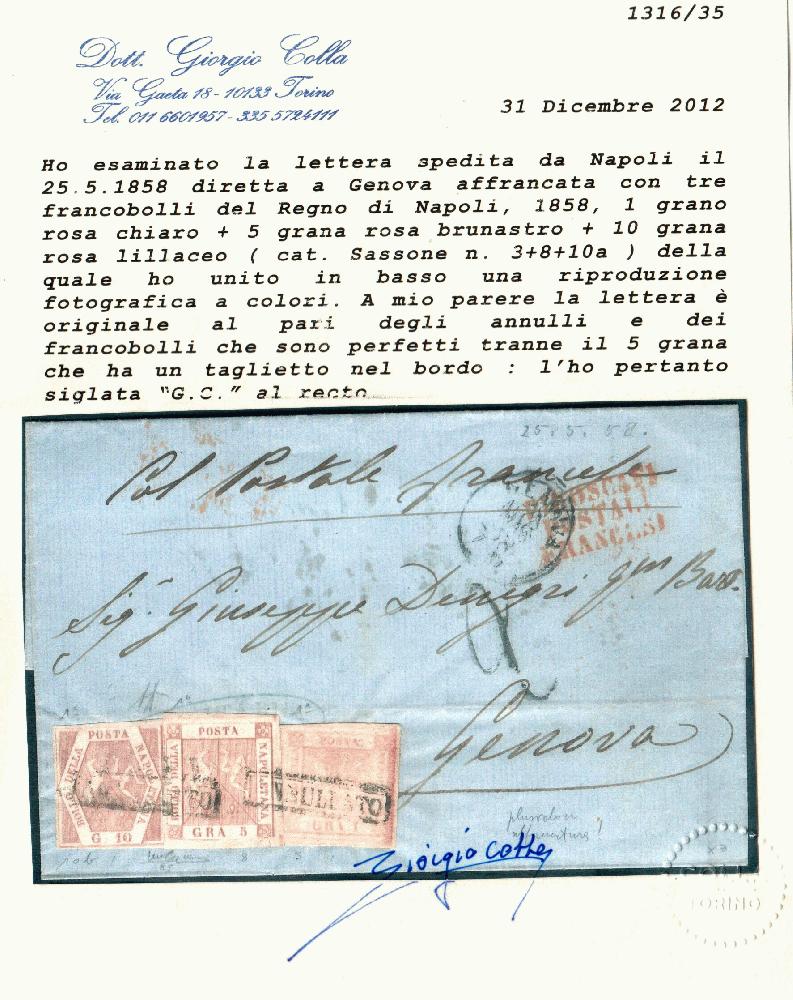 1316/35
Dott. Giorgio Colla
Via Gaeta 18 - 10133 Torino
Tel. 011 6601957 - 335 5724111
31 Dicembre 2012
Ho esaminato la lettera spedita da Napoli il
25.5.1858 diretta a Genova affrancata con tre
francobolli del Regno di Napoli, 1858, 1 grano
rosa chiaro + 5 grana rosa brunastro + 10 grana
rosa lillaceo ( cat. Sassone n. 3+8+10a ) della
quale ho unito in basso una riproduzione
fotografica a colori. A mio parere la lettera è
originale al pari degli annulli e dei
francobolli che sono perfetti tranne il 5 grana
che ha un taglietto nel bordo : l'ho pertanto
siglata "G.C." al recto
25. 5. 58.
Col Postale francese
PIROSCAFI
POSTALI
FRANCESI
Sig. Giuseppe Denegri qm Bart.
Genova
BOLLO DELLA POSTA NAPOLETANA
G 10
BOLLO DELLA POSTA NAPOLETANA
GRA 5
POSTA
GRA 1
ANNULLATO
Giorgio Colla
TORINO